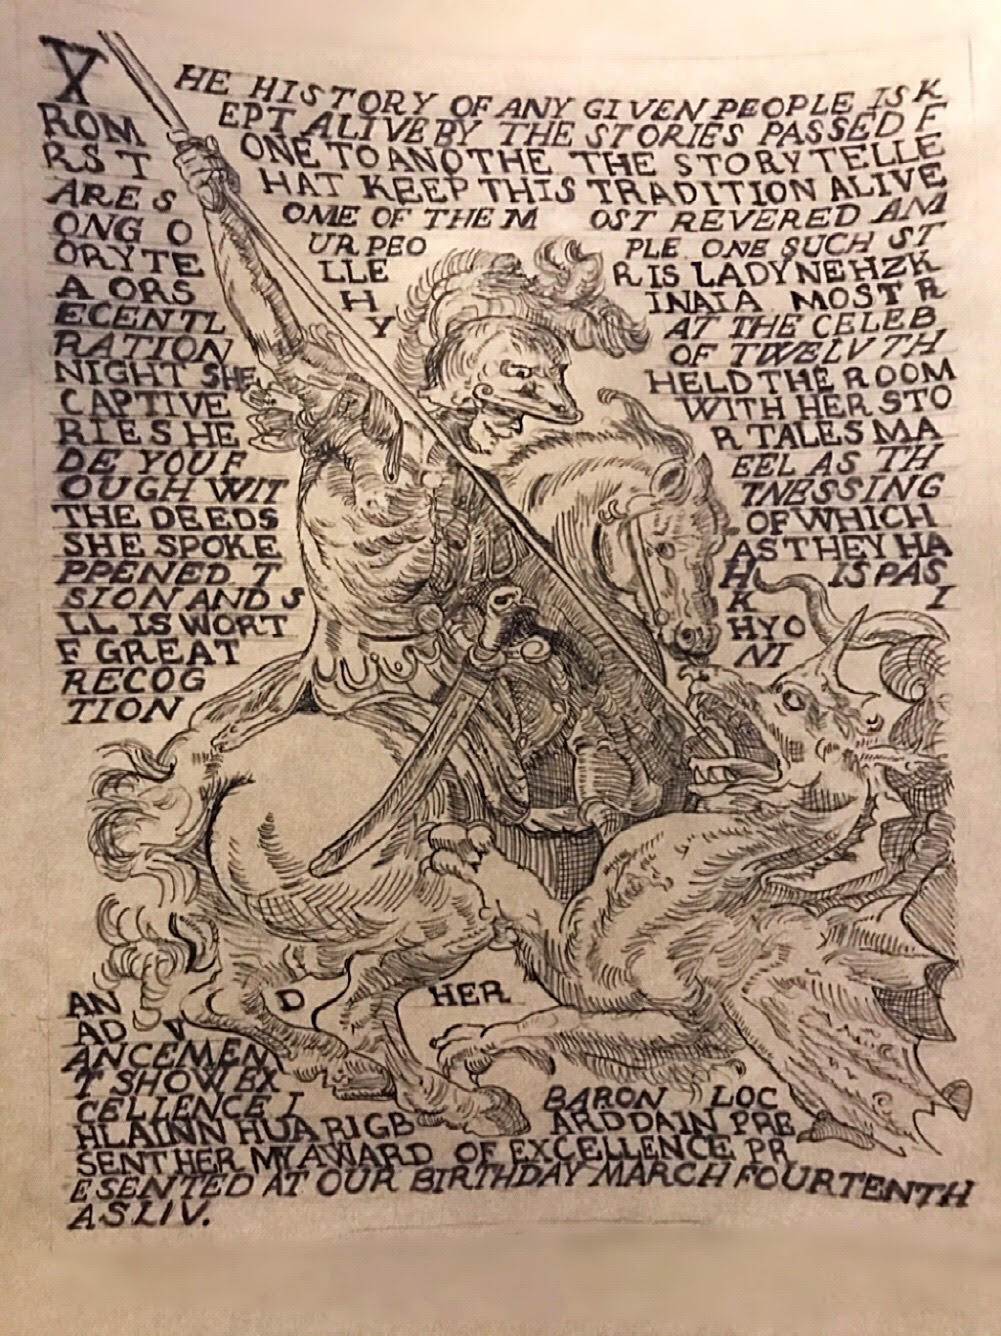 X HE HISTORY OF ANY GIVEN PEOPLE IS K
EPT ALIVE BY THE STORIES PASSED F
ROM ONE TO ANOTHE THE STORY TELLE
RS T HAT KEEP THIS TRADITION ALIVE
ARE S OME OF THE M OST REVERED AM
ONG O UR PEO PLE ONE SUCH ST
ORYTE LLE R IS LADY NEHZK
A ORS H INAIA MOST R
ECENTL Y AT THE CELEB
RATION OF TWELVTH
NIGHT SHE HELD THE ROOM
CAPTIVE WITH HER STO
RIES HE R TALES MA
DE YOU F EEL AS TH
OUGH WIT TNESSING
THE DEEDS OF WHICH
SHE SPOKE AS THEY HA
PPENED T H IS PAS
SION AND S K I
LL IS WORT HY O
F GREAT NI
RECOG
TION
AN D HER
AD V
ANCEMEN
T SHOW EX
CELLENCE I BARON LOC
HLAINN HUA RIGB ARDDAIN PRE
SENT HER MY AWARD OF EXCELLENCE PR
ESENTED AT OUR BIRTHDAY MARCH FOURTENTH
AS LIV.